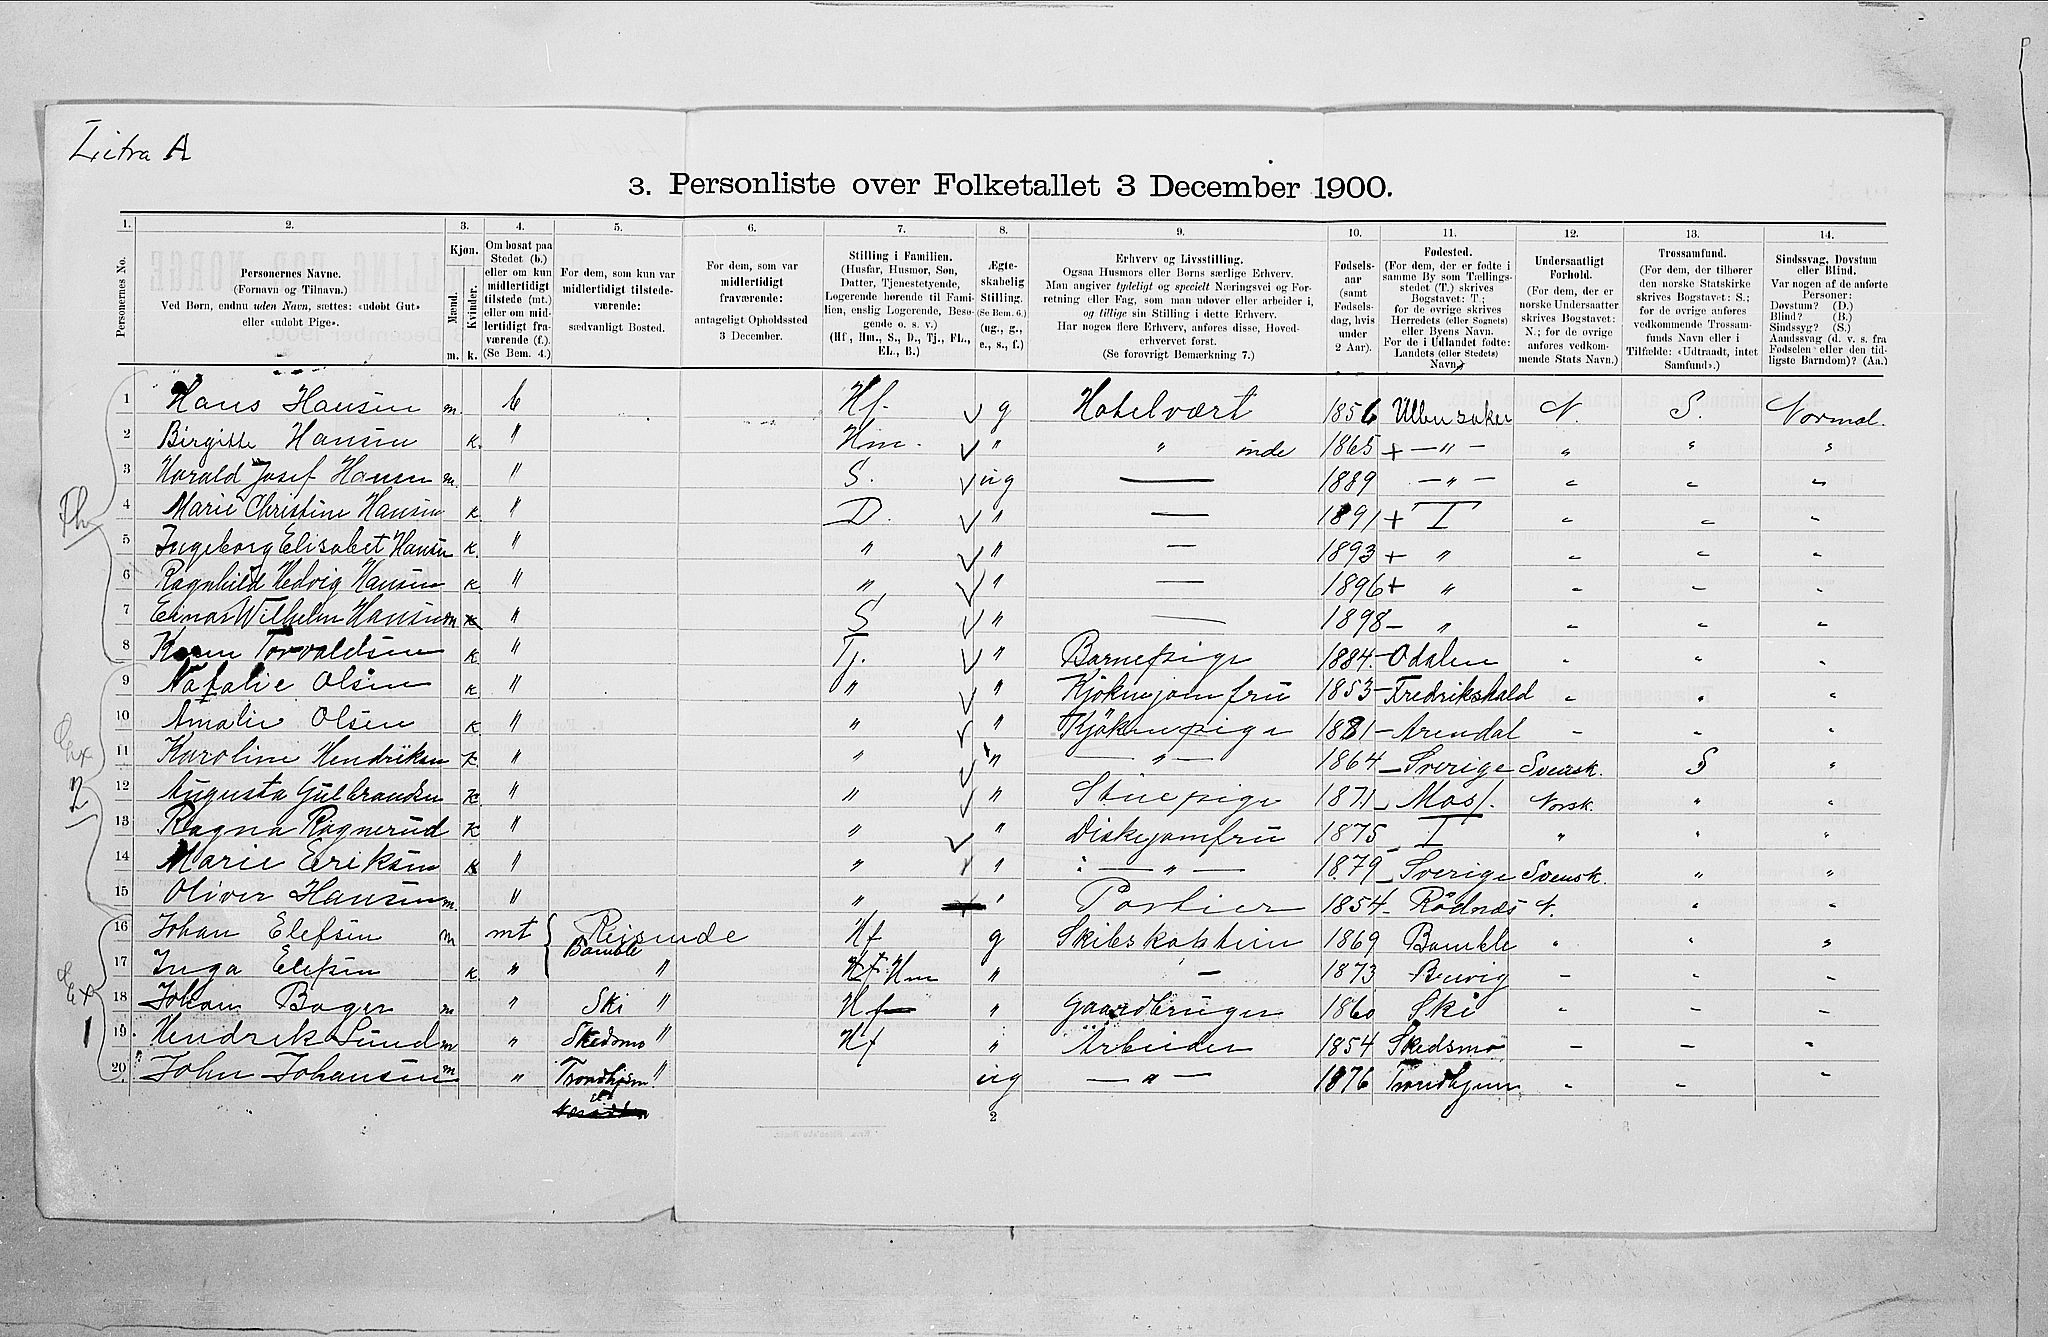 Litra A
3. Personliste over Folketallet 3 December 1900.
1. 2. 3. 4. 5. 6. 7. 8. 9. 10. 11. 12. 13. 14.
Personernes No.
Personernes Navne.
(Fornavn og Tilnavn.)
Ved Børn, endnu uden Navn, sættes: «udøbt Gut»
eller «udøbt Pige».
Kjøn.
Mænd.
Kvinder.
m. k.
Om bosat paa
Stedet (b.)
eller om kun
midlertidigt
tilstede (mt.)
eller om mid-
lertidigt fra-
værende (f.).
(Se Bem. 4.)
For dem, som kun var
midlertidigt tilstede-
værende:
sædvanligt Bosted.
For dem, som var
midlertidigt
fraværende:
antageligt Opholdssted
3 December.
Stilling i Familien.
(Husfar, Husmor, Søn,
Datter, Tjenestetyende,
Logerende hørende til Fami-
lien, enslig Logerende, Besø-
gende o. s. v.)
(Hf, Hm., S., D., Tj., FL.,
EL., B.)
Ægte-
skabelig
Stilling.
(Se Bem. 6.)
(ug., g.,
e., s., f.)
Erhverv og Livsstilling.
Ogsaa Husmors eller Børns særlige Erhverv.
Man angiver tydeligt og specielt Næringsvei og For-
retning eller Fag, som man udøver eller arbeider i,
og tillige sin Stilling i dette Erhverv.
Har nogen flere Erhverv, anføres disse, Hoved-
erhvervet først.
(Se forøvrigt Bemerkning 7.)
Fødsels-
aar
(samt
Fødsels-
dag, hvis
under
2 Aar).
Fødested.
(For dem, der er føde i
samme By som Tællings-
stedet (T.) skrives
Bogstavet: T;
for de øvrige skrives
Herredets (eller Sognets)
eller Byens Navn.
For de i Udlandet fødte:
Landets (eller Stedets)
Navn.)
Undersaatligt
Forhold.
(For dem, der er
norske Undersaatter
skrives Bogstavet:
N.; for de øvrige
anføres vedkom-
mende Stats Navn.)
Trossamfund.
(For dem, der tilhører
den norske Statskirke
skrives Bogstavet: S.;
for de øvrige anføres
vedkommende Trossam-
funds Navn eller i
Tilfælde: «Udtraadt, intet
Samfund».)
Sindssvag, Døvstum
eller Blind.
Var nogen af de anførte
Personer:
Døvstum? (D.)
Blind? (B.)
Sindssyg? (S.)
Aandssvag (d. v. s. fra
Fødselen eller den tid-
ligste Barndom)? (Aa.)
1 Hans Hansen m. b Hf. g Hotelvært 1856 Ullensaker N. S. Normal.
2 Birgitte Hansen k. " Hm. " " inde 1865 + — " — " " "
3 Harald Josef Hansen m. " S. ug — 1889 — " — " " "
4 Marie Christine Hansen k. " D. " — 1891 + T " " "
5 Ingeborg Elisabet Hansen k. " " " — 1893 + " " " "
6 Ragnhild Hedvig Hansen k. " " " — 1896 + " " " "
7 Einar Wilhelm Hansen m " S " — 1898 — " " " "
8 Karen Torvaldsen k. " Tj. " Barnepige 1884 — Odalen " " "
9 Natalie Olsen k " " " Kjøkenjomfru 1853 — Fredrikshald " " "
10 Amalie Olsen k " " " Kjökenpige 1881 — Arendal " " "
11 Karoline Hendriksen k " " " — " — 1864 — Sverige Svensk. S "
12 Augusta Gulbrandsen k " " " Stuepige 1871 — Moss. Norsk. " "
13 Ragna Ragnerud k " " " Diskejomfru 1875 — T " " "
14 Marie Eriksen k " " " — " — 1879 — Sverige Svensk. " "
15 Oliver Hansen m. " " " Portier 1854 — Rødnæs N. " "
16 Johan Elefsen m mt Reisende Hf g Skibskaptein 1869 Bamble " " "
Bamble
17 Inga Elefsen k " " Hm " — 1873 Brevig — — —
18 Johan Bager m " Ski " Hf " Gaardbruger 1860 Ski " " "
19 Hendrik Lund m " Skedsmo " Hf " Arbeider 1854 Skedsmo — — "
20 John Johansen m " Trondhjem " ug — " — 1876 Trondhjem " — "
2